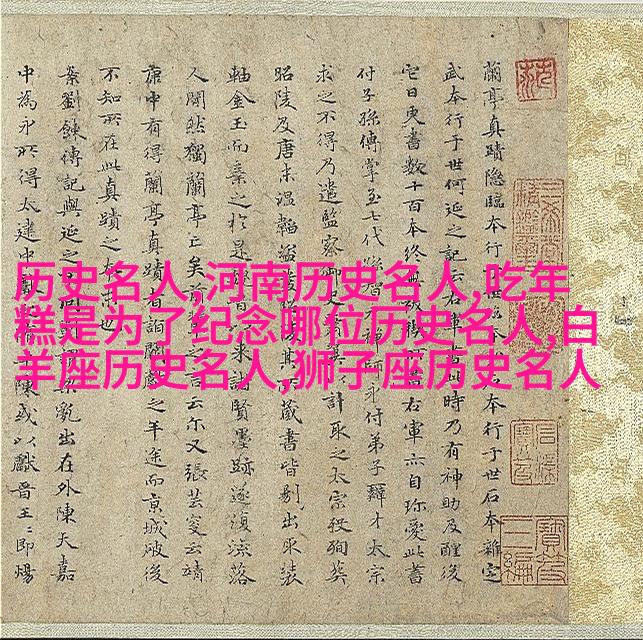 历史名人,河南历史名人,吃年
糕是为了纪念哪位历史名人,白
羊座历史名人,狮子座历史名人
蘭亭真蹟隱臨本行世本行于世石本雜定
武本行于世何延之記云右軍書此時乃有神助及醒後
它日更書數十百本終無右軍亦自珍愛此書
付子孫傳掌至七代永付弟子辯才太宗
求之不得乃遣監察御史計取之太宗殉葬
昭陵及唐末溫韜盜其藏書皆剔出取裝
軸金玉而棄之於是來諸賢墨跡遂復流落
人間然獨蘭亭亡矣前之言云尒又張芸叟云靖
康中有得蘭亭真蹟者詣闕之半途而京城破後
不知所在此真蹟之本末也
案劉餗傳記與延之亂出在外陳天嘉
中為永所得太建中獻陳或以獻晉王王即煬